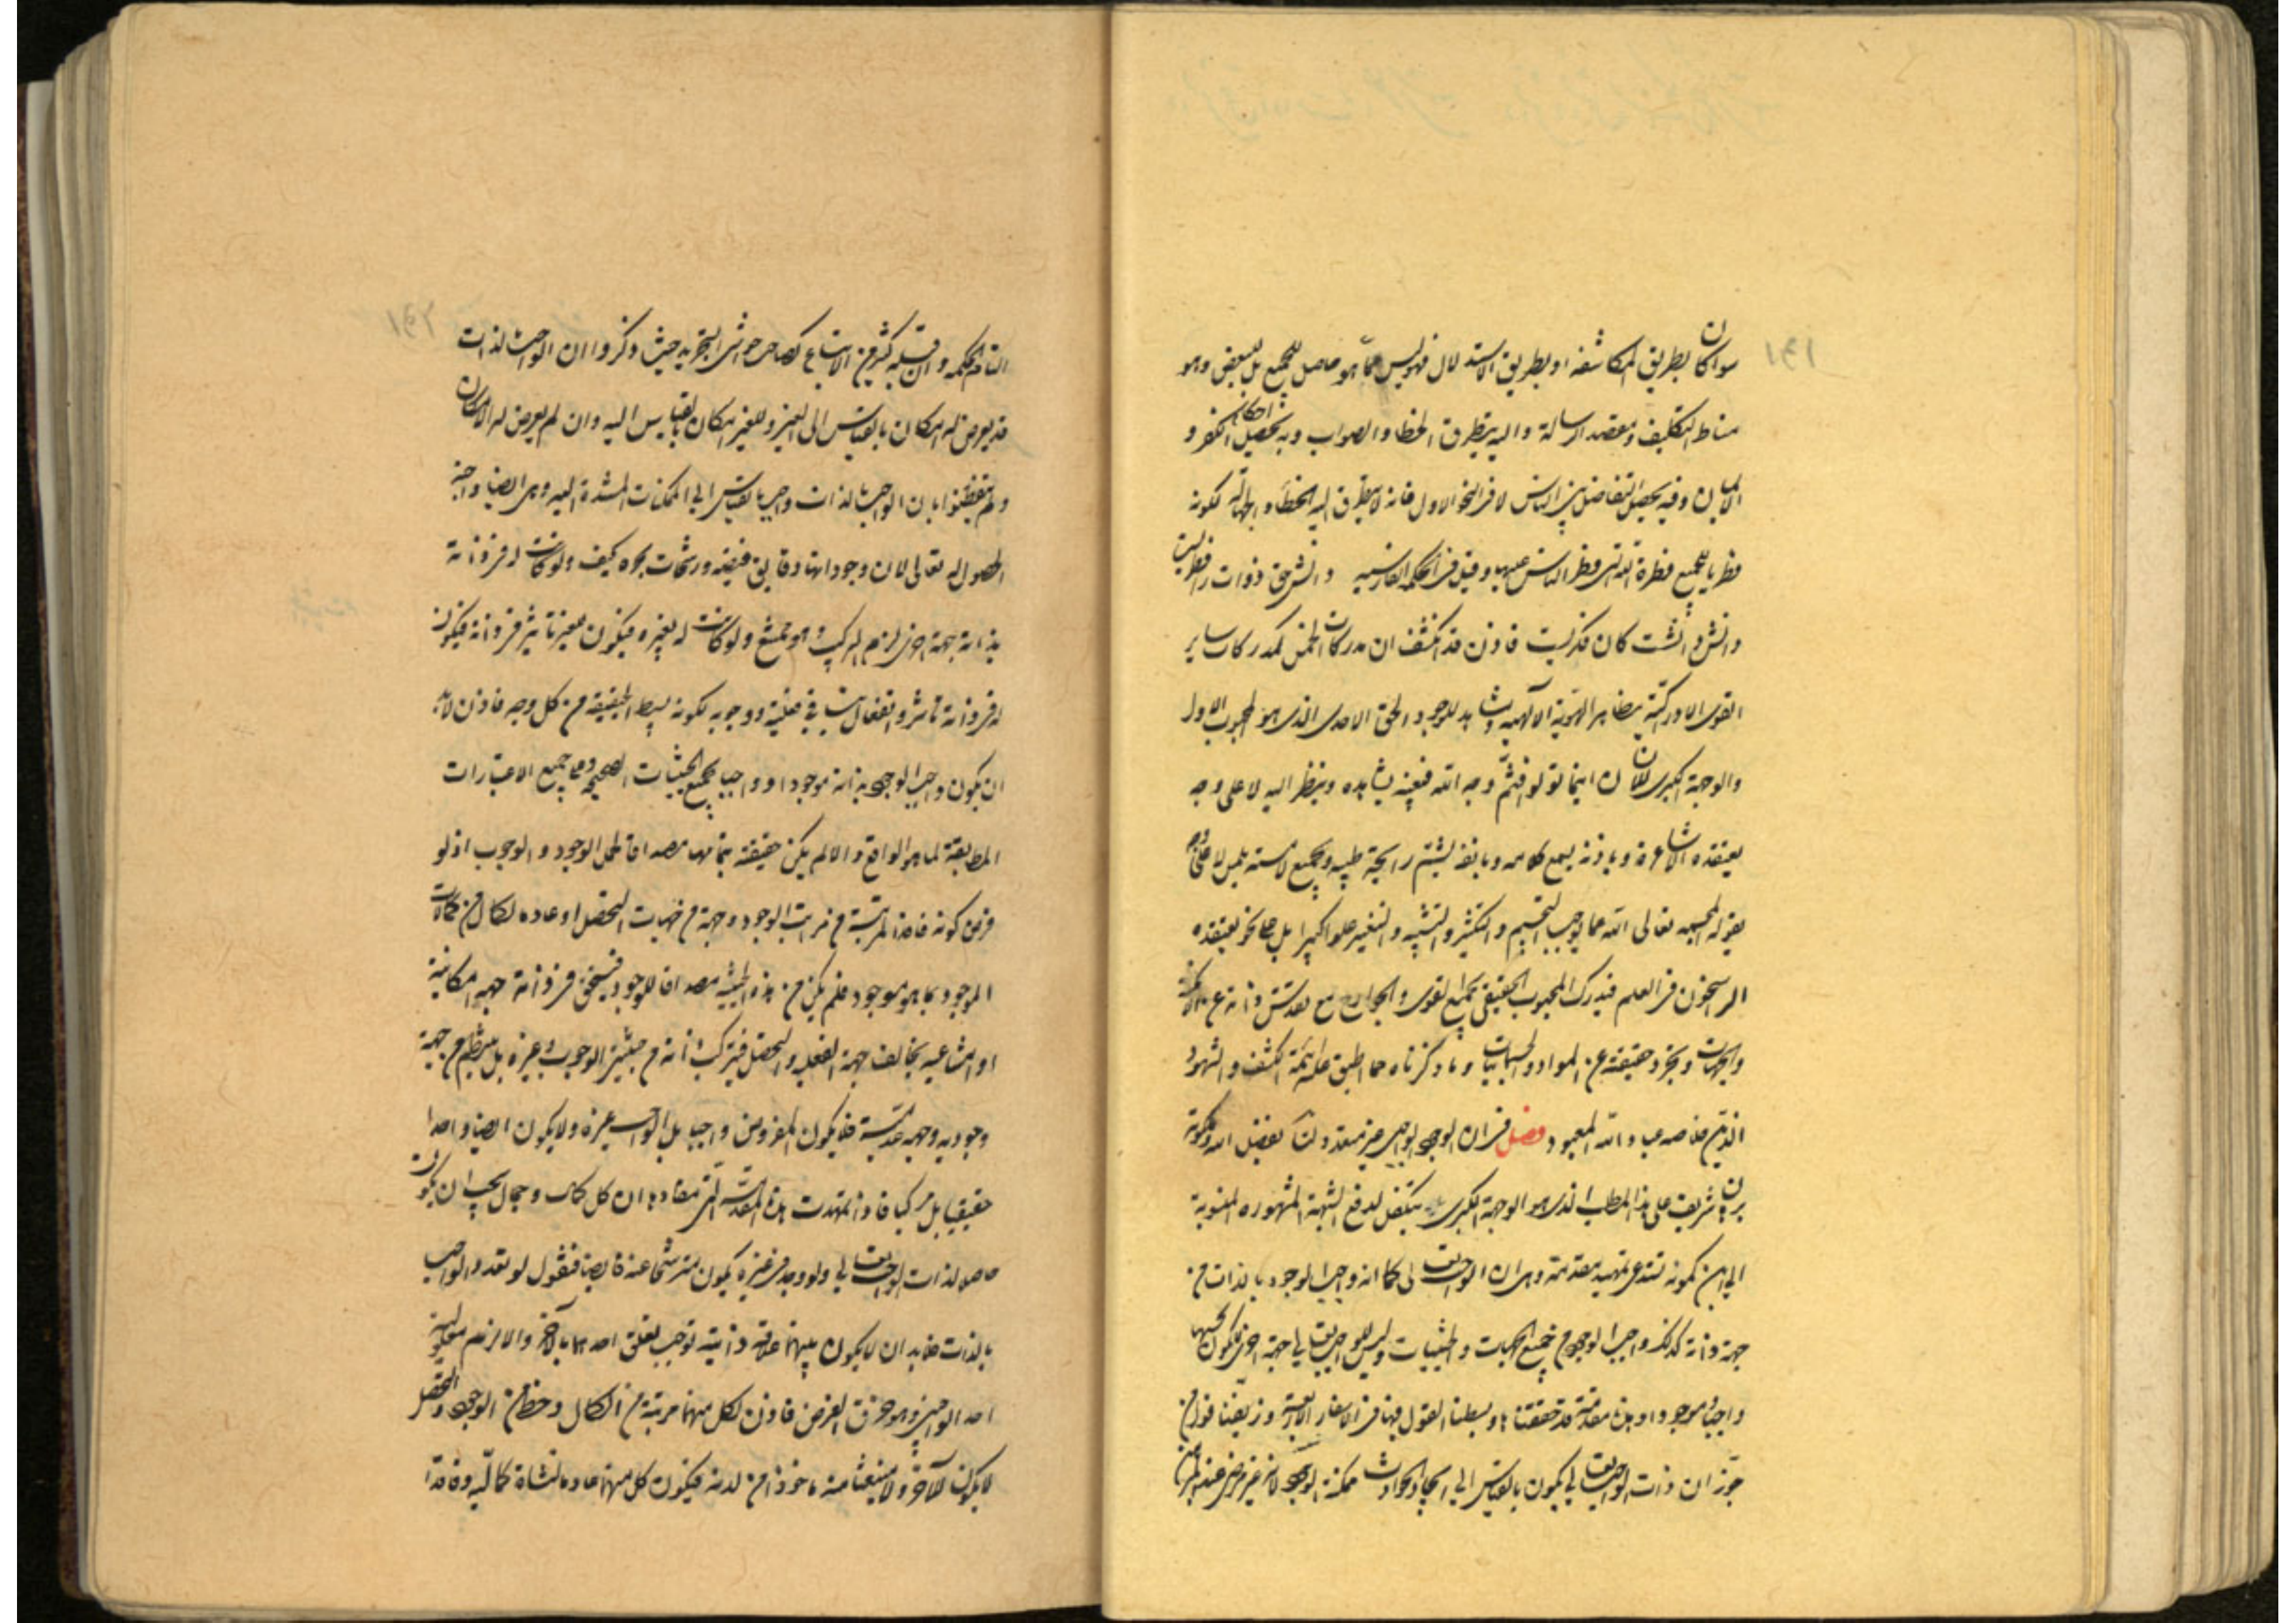 سواء كان بطريق المكاشفة او بطريق الاستدلال فهو ليس مما هو حاصل للجميع بل للبعض وهو
مناط التكليف ومقصد الرسالة واليه يتطرق الخطا والصواب وبه يحصل احكام الكفر و
الايمان وفيه يحصل التفاضل بين الناس لا فى النحو الاول فانه لا يتطرق اليه الخطاء والجهالة لكونه
فطريا للجميع فطرة الله التى فطر الناس عليها وقيل فى الحكمة الفارسية دانش حق ذوات را فطريست
دانش دانشت كان فكريست فاذن قد انكشف ان مدركات الخمس كمدركات ساير
القوى الادراكية مظاهر الهوية الآلهيه ... للوجود الحق الاحدى الذى هو المحبوب الاول
والوجهة الكبرى للانسان اينما تولوا فثم وجه الله فبعينه يشاهده وينظر اليه لا على وجه
يعتقده الاشاعرة وباذنه يسمع كلامه وبانفه يشتم رايحة طيبه وبجميع لامسته يلمس لا على وجه
يقوله المجسمه تعالى الله عما يوجب التجسيم والتكثير والتشبيه والتغيير علوا كبيرا بل على نحو يعتقده
الراسخون فى العلم فيدرك المحبوب الحقيقى بجميع القوى والجوارح مع تقدس ذاته عن الامكنة
والجهات وتجرد حقيقته عن المواد والجسمانيات وما ذكرناه مما اطبق عليه ائمة الكشف والشهود
الذين خلاصه عباد الله المعبود فصل فى ان الوجود الواجبى غير متعدد لنا بفضل الله وملكوته
برهان شريف على هذا المطلب الذى هو الوجهة الكبرى يتكفل لدفع الشبهة المشهوره المنسوبة
الى ابن كمونه تستدعى تمهيد مقدمة وهى ان الواجب تعالى كما انه واجب الوجود بالذات من
جهة ذاته كذلك واجب الوجود من جميع الجهات والحيثيات وليس للواجب تعالى جهة اخرى لا يكون بحسبها
واجبا وموجودا وهذه مقدمة قد حققناها وبسطنا القول فيها فى الاسفار الاربعة وزيفنا قول من
جوز ان ذات الواجب تعالى يكون بالقياس الى ايجاد الحوادث ممكنة الوجود لانه غير مرضى عند ...
التام الحكمه وان قبله كثير من الاتباع كصاحب حواشى التجريد حيث ذكروا ان الواجب لذاته
قد يعرض له الامكان بالقياس الى الغير وللغير امكان بالقياس اليه وان لم يعرض له الامكان
ولم يتفطنوا بان الواجب بالذات واجب بالقياس الى الممكنات المستندة اليه وهى ايضا واجبة
الحصول له تعالى لان وجوداتها دقايق فيضه ورشحات جوده كيف ولو كانت له فى ذاته
بذاته جهة اخرى لزم التركيب وهو ممتنع ولو كانت له بغيره فيكون لغيره تاثير فى ذاته فيكون
له فى ذاته تاثر وانفعال ينافى فعليته ووجوبه لكونه بسيط الحقيقة من كل وجه فاذن لابد
ان يكون واجب الوجود بذاته موجودا وواجبا بجميع الحيثيات الصحيحه وعلى جميع الاعتبارات
المطابقة لما هو الواقع والا لم يكن حقيقته بتمامها مصداقا لحمل الوجود والوجوب اذ لو
فرض كونه فاقدا لمرتبة من مراتب الوجود وجهة من جهات التحصل او عادما لكمال من كمالات
الموجود بما هو موجود فلم يكن من هذه الحيثية مصداقا للوجود فيتحقق فى ذاته جهه امكانية
او امتناعيه يخالف جهة الفعليه والتحصل فيتركب ذاته من حيثيتى الوجوب وغيره بل ينتظم من جهة
وجوديه وجهه عدميه فلا يكون المفروض واجبا بل الواجب غيره ولا يكون ايضا واحدا
حقيقيا بل مركبا فاذا تمهدت هذه المقدمة التى مفادها ان كل كمال وجمال يجب ان يكون
حاصلا لذات الواجب تعالى ولو وجد فى غيره يكون مترشحا عنه فايضا فنقول لو تعدد الواجب
بالذات فلابد ان لا يكون بينهما علاقة ذاتية توجب تعلق احدهما بالآخر والا لزم معلولية
احد الواجبين وهو خرق الفرض فاذن لكل منهما مرتبة من الكمال وحظ من الوجود والتحصل
لا يكون للآخر ولا منبعثا منه ماخوذا من لدنه فيكون كل منهما عادما لنشاة كماليه وفاقدا